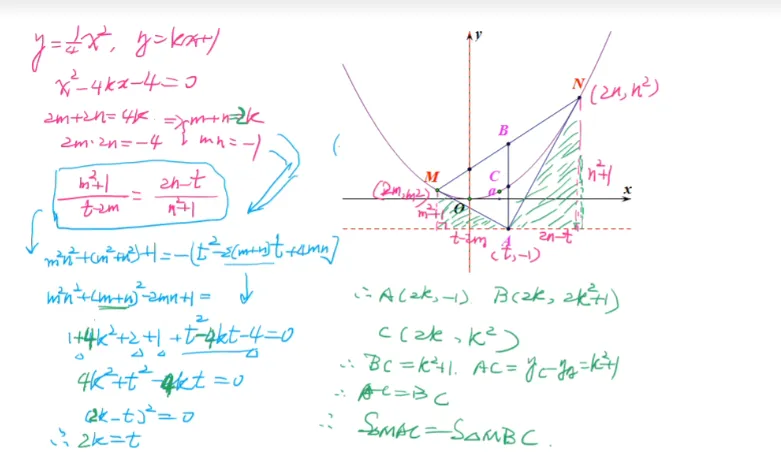 y=¼x², y=kx+1
x²-4kx-4=0
2m+2n=4k ⇒ m+n=2k
2m·2n=-4 mn=-1
(m²+1)/(t-2m) = (2n-t)/(n²+1)
m²n²+(m²+n²)+1=-(t²-2(m+n)t+4mn]
m²n²+(m+n)²-2mn+1=
1+4k²+2+1+t²-4kt-4=0
4k²+t²-4kt=0
(2k-t)²=0
∴ 2k=t
y
N (2n, n²)
B
M C a
(2m, m²) O x
m²+1 n²+1
t-2m A 2n-t
(t, -1)
∴ A(2k, -1) B(2k, 2k²+1)
C(2k, k²)
∴ BC=k²+1. AC=y_C-y_A=k²+1
∴ AC=BC
∴ S△MAC=S△MBC.